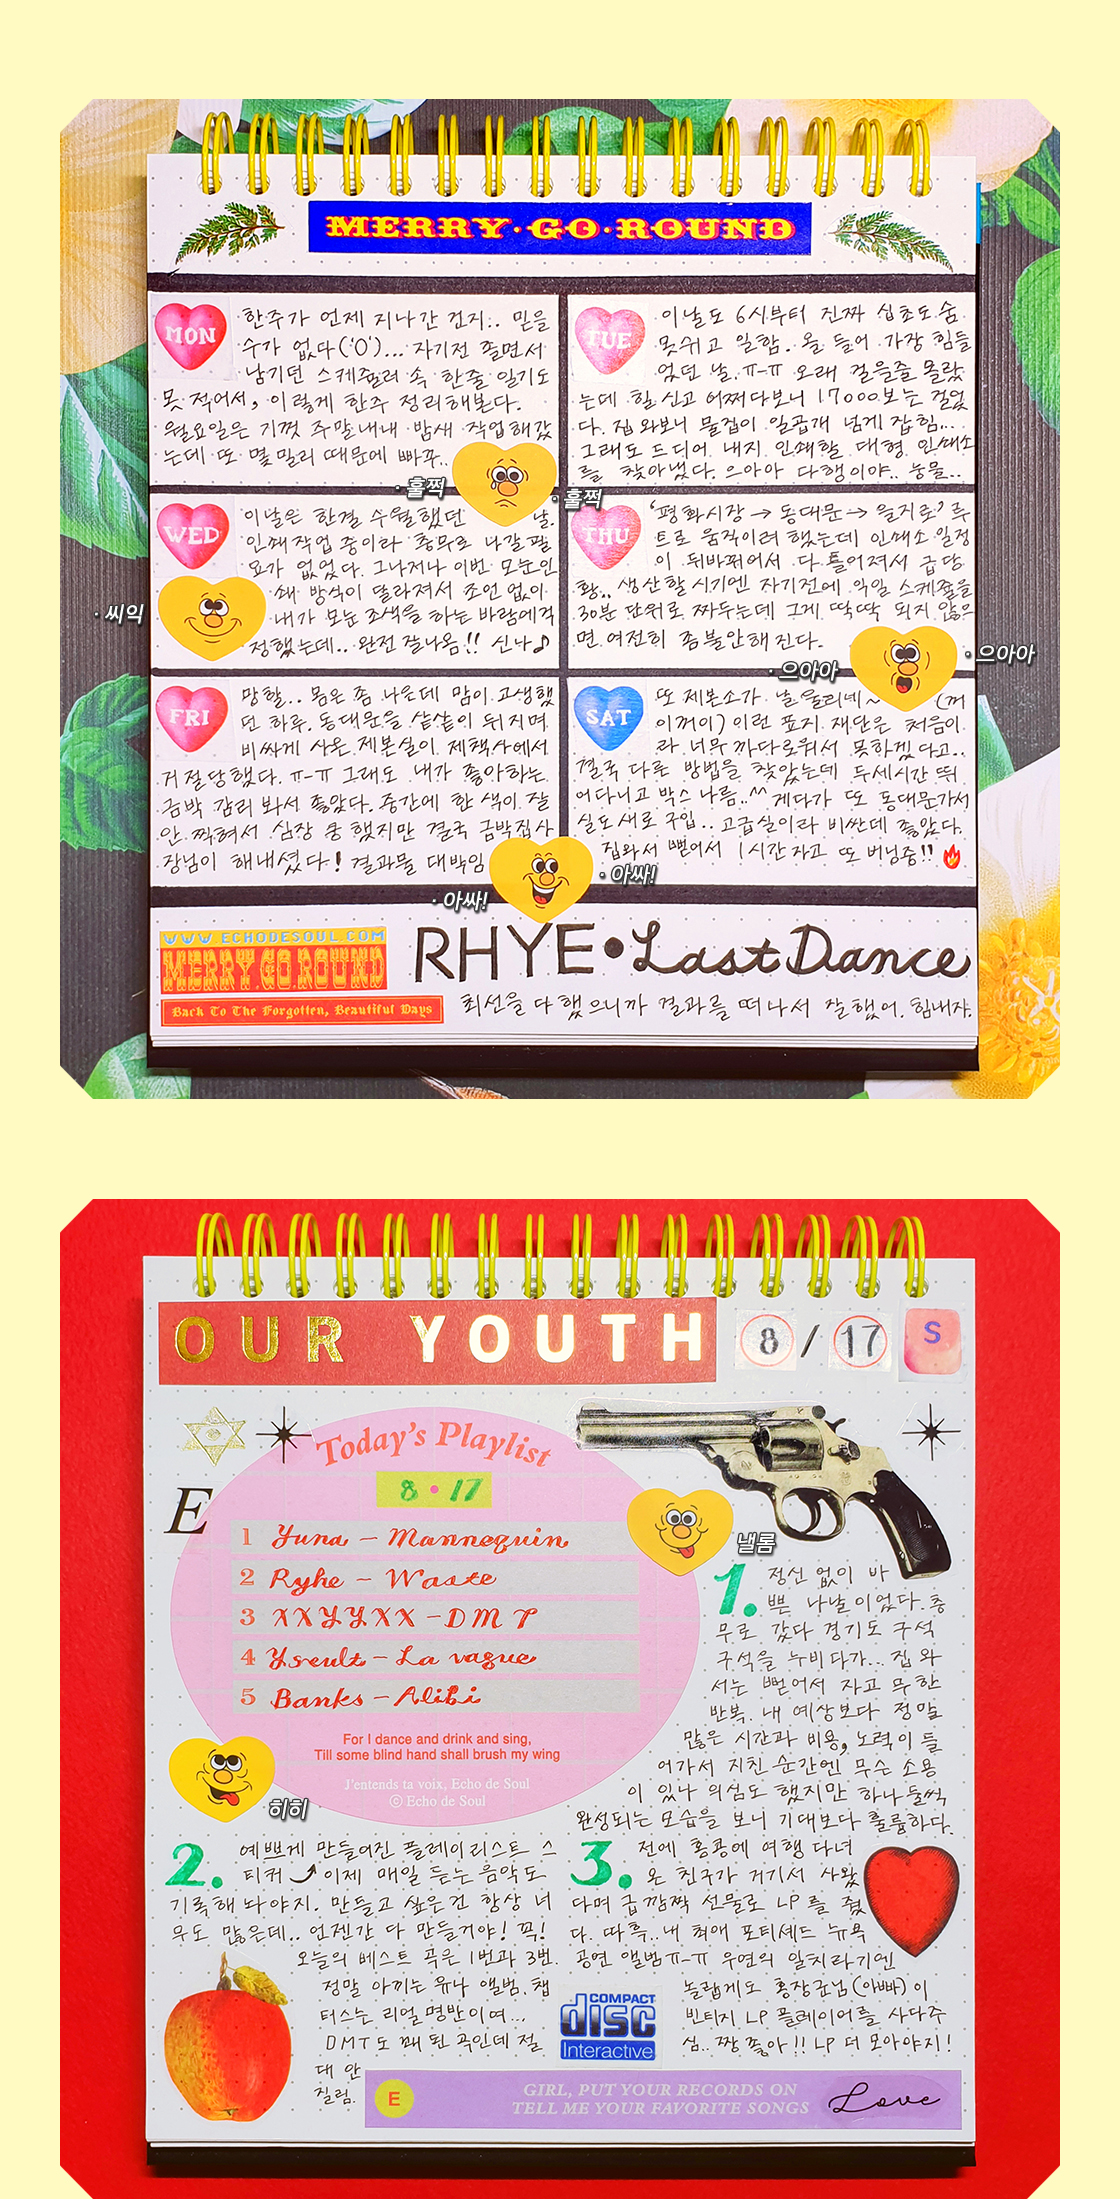 MERRY·GO·ROUND
MON
한주가 언제 지나간 건지.. 믿을
수가 없다('0')... 자기전 졸면서
남기던 스케쥴러 속 한줄 일기도
못 적어서, 이렇게 한주 정리해본다.
월요일은 기껏 주말내내 밤새 작업해갔
는데 또 몇 밀리 때문에 빠꾸..
·훌쩍
·훌쩍
TUE
이날도 6시부터 진짜 십초도 숨
못쉬고 일함. 올 들어 가장 힘들
었던 날.ㅠ-ㅠ 오래 걸을줄 몰랐
는데 힐 신고 어쩌다보니 17000보는 걸었
다. 집 와보니 물집이 일곱개 넘게 잡힘...
그래도 드디어 내지 인쇄할 대형 인쇄소
를 찾아냈다. 으아아 다행이야.. 눈물..
WED
이날은 한결 수월했던 날.
인쇄작업 중이라 충무로 나갈 필
요가 없었다. 그나저나 이번 모눈인
쇄 방식이 달라져서 조언 없이
내가 모눈 조색을 하는 바람에 걱
정했는데.. 완전 잘나옴!! 신나♪
·씨익
THU
'평화시장→동대문→을지로' 루
트로 움직이려 했는데 인쇄소 일정
이 뒤바뀌어서 다 틀어져서 급 당
황.. 생산할 시기엔 자기전에 익일 스케쥴을
30분 단위로 짜두는데 그게 딱딱 되지 않으
면 여전히 좀 불안해 진다.
·으아아
·으아아
FRI
망할.. 몸은 좀 나은데 맘이 고생했
던 하루. 동대문을 샅샅이 뒤지며
비싸게 사온 제본실이 제책사에서
거절당했다. ㅠ-ㅠ 그래도 내가 좋아하는
금박 감리 봐서 좋았다. 중간에 한 색이 잘
안 찍혀서 심장 쿵 했지만 결국 금박집사
장님이 해내셨다! 결과물 대박임
·아싸!
·아싸!
SAT
또 제본소가 날 울리네~ (꺼
이꺼이) 이런 표지 재단은 처음이
라 너무 까다로워서 못하겠다고..
결국 다른 방법을 찾았는데 두세시간 뛰
어다니고 박스 나름..^^ 게다가 또 동대문가서
실도 새로 구입.. 고급실이라 비싼데 좋았다.
집와서 뻗어서 1시간 자고 또 버닝중!!
WWW.ECHODESOUL.COM
MERRY.GO.ROUND
Back To The Forgotten, Beautiful Days
RHYE•Last Dance
최선을 다 했으니까 결과를 떠나서 잘했어. 힘내자.
OUR YOUTH
8 / 17
S
Today's Playlist
8 • 17
E
1 Yuna – Mannequin
2 Ryhe – Waste
3 XXYYXX – DMT
4 Yseult – La vague
5 Banks – Alibi
For I dance and drink and sing,
Till some blind hand shall brush my wing
J'entends ta voix, Echo de Soul
ⓒ Echo de Soul
낼롬
히히
1. 정신 없이 바
쁜 나날이었다. 충
무로 갔다 경기도 구석
구석을 누비다가... 집 와
서는 뻗어서 자고 무한
반복. 내 예상보다 정말
많은 시간과 비용, 노력이 들
어가서 지친 순간엔 무슨 소용
이 있나 의심도 했지만 하나둘씩
완성되는 모습을 보니 기대보다 훌륭하다.
2. 예쁘게 만들어진 플레이리스트 스
티커 이제 매일 듣는 음악도
기록해 놔야지. 만들고 싶은건 항상 너
무도 많은데.. 언젠간 다 만들거야! 꼭!
오늘의 베스트 곡은 1번과 3번.
정말 아끼는 유나 앨범. 챕
터스는 리얼 명반이여...
DMT도 꽤 된 곡인데 절
대 안
질림.
3. 전에 홍콩에 여행 다녀
온 친구가 거기서 사왔
다며 급 깜짝 선물로 LP를 줬
다. 따흑.. 내 최애 포티셰드 뉴욕
공연 앨범ㅠ-ㅠ 우연의 일치라기엔
놀랍게도 홍장군님(아빠)이
빈티지 LP 플레이어를 사다주
심.. 짱 좋아!! LP 더 모아야지!
COMPACT
disc
Interactive
E
GIRL, PUT YOUR RECORDS ON
TELL ME YOUR FAVORITE SONGS
Love